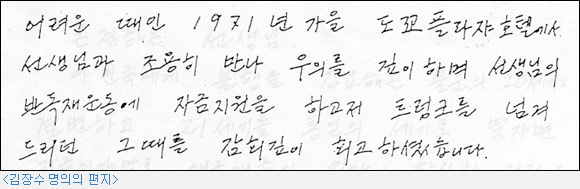 어려운 때인 1971년 가을 도꾜플라쟈호텔에서
선생님과 조용히 만나 우의를 깊이하며 선생님의
반독재운동에 자금지원을 하고저 트렁크를 넘겨
드리던 그때를 감회깊이 회고하셨습니다.
<김장수 명의의 편지>